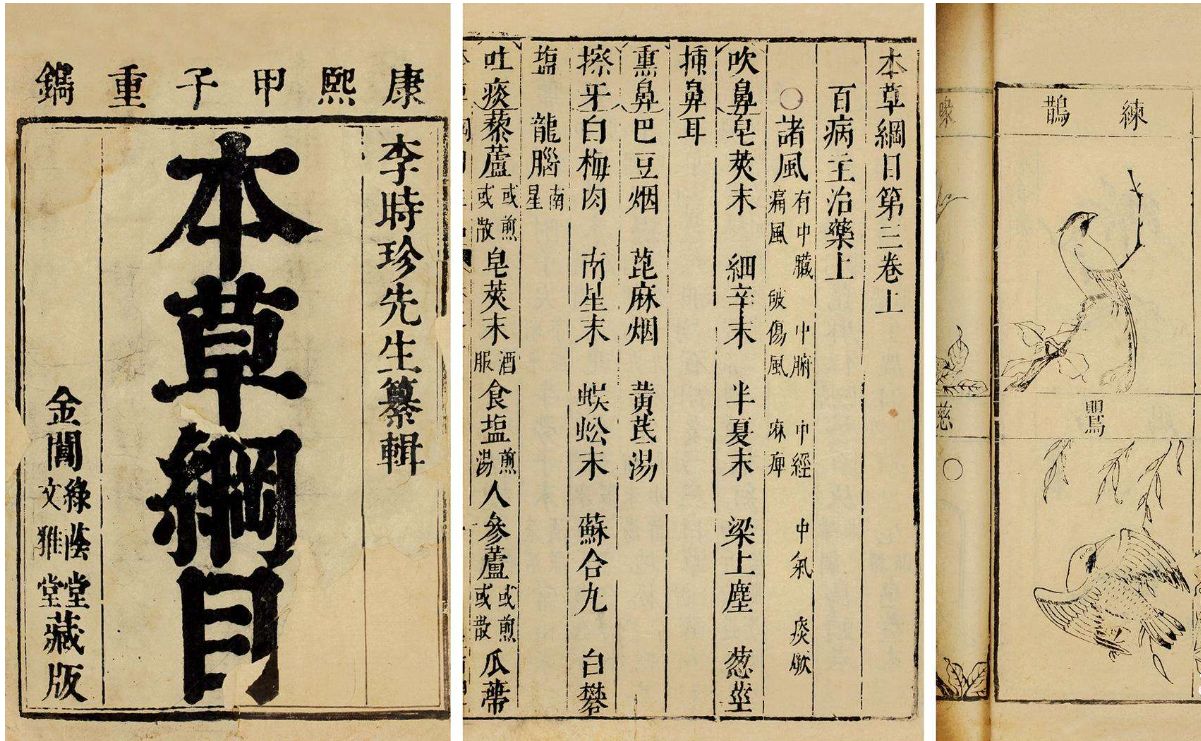 康熙甲子重鐫
李時珍先生纂輯
本草綱目
金閶
綠蔭堂
文雅堂
藏版
本草綱目第三卷上
百病主治藥上
○諸風 有中臟 中腑 中經 中氣 痰厥 痛風 破傷風 麻痺
吹鼻 皂莢末 細辛末 半夏末 梁上塵 葱莖
插鼻耳
熏鼻 巴豆烟 蓖麻烟 黃芪湯
擦牙 白梅肉 南星末 蜈蚣末 蘇合丸 白礬
塩 龍腦 南星
吐痰 藜蘆 或煎或散 皂莢末 酒服 食塩 煎湯 人參蘆 或煎或散 瓜蒂
練鵲
鸎
慈
○